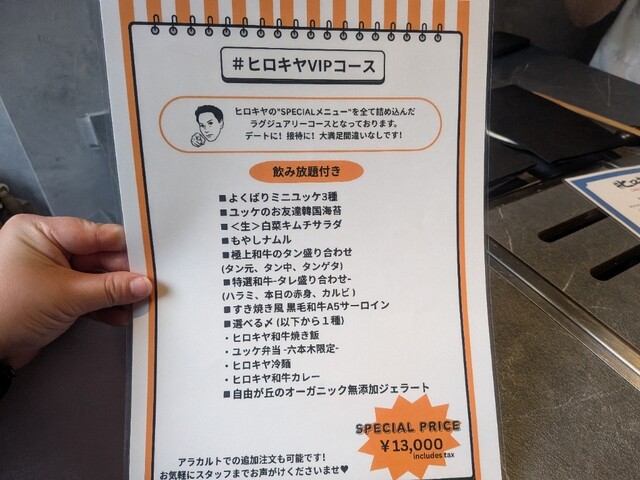 #ヒロキヤVIPコース
ヒロキヤの"SPECIALメニュー"を全て詰め込んだ
ラグジュアリーコースとなっております。
デートに!接待に!大満足間違いなしです!
飲み放題付き
■よくばりミニユッケ3種
■ユッケのお友達韓国海苔
■<生>白菜キムチサラダ
■もやしナムル
■極上和牛のタン盛り合わせ
(タン元、タン中、タンゲタ)
■特選和牛-タレ盛り合わせ-
(ハラミ、本日の赤身、カルビ)
■すき焼き風 黒毛和牛A5サーロイン
■選べる〆(以下から1種)
・ヒロキヤ和牛焼き飯
・ユッケ弁当-六本木限定-
・ヒロキヤ冷麺
・ヒロキヤ和牛カレー
■自由が丘のオーガニック無添加ジェラート
SPECIAL PRICE
¥13,000
includes tax
アラカルトでの追加注文も可能です!
お気軽にスタッフまでお声がけくださいませ♥